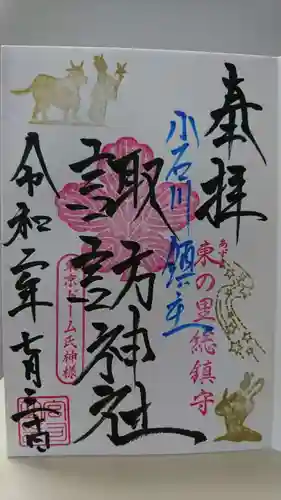 奉拝
小石川鎮主
あづま
東の里総鎮守
諏訪神社
東京ドーム氏神様
令和二年七月